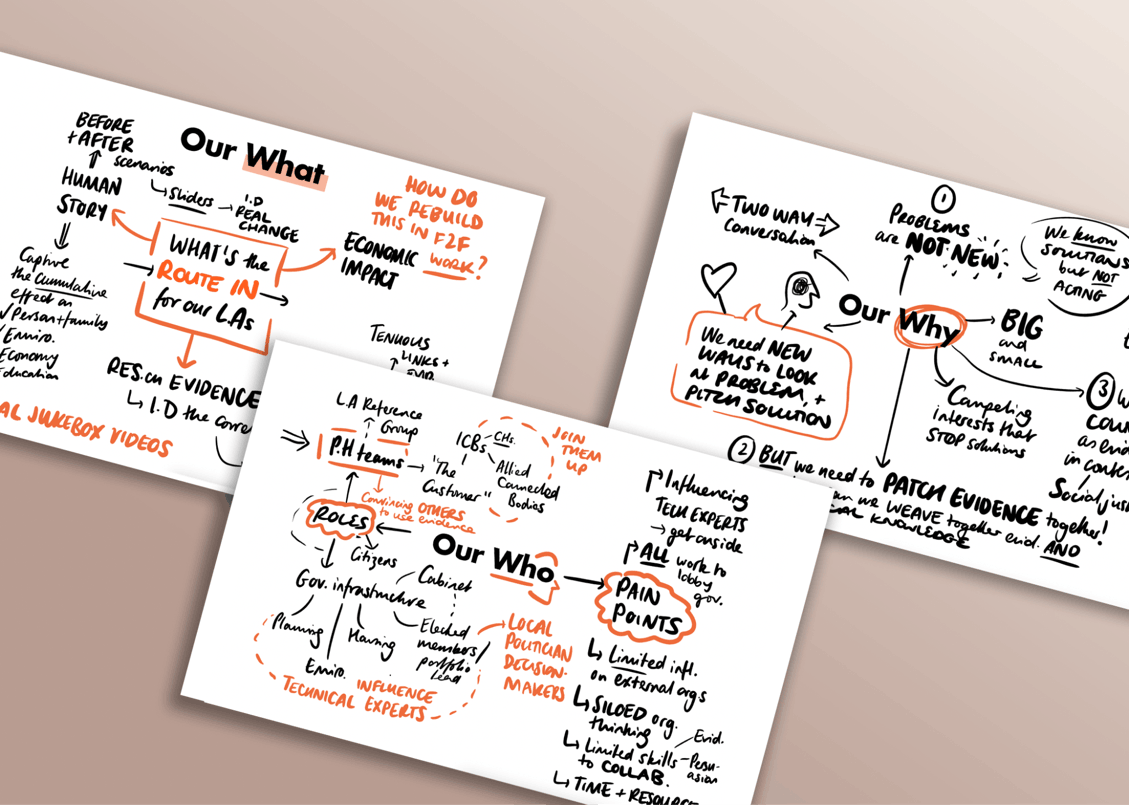 Our What
BEFORE
+ AFTER
scenarios
Sliders
I.D
REAL
CHANGE
HUMAN
STORY
Capture
the Cumulative
effect on
Person+family
Enviro.
Economy
Education
WHAT'S the
ROUTE IN
for our L.As
ECONOMIC
IMPACT
HOW DO
WE REBUILD
THIS IN F2F
WORK?
TENUOUS
LINKS +
RES.ch EVIDENCE
I.D the
AL JUKEBOX VIDEOS
Our Who
L.A Reference
Group
P.H teams
"The
Customer"
Convincing OTHERS
to use evidence
ICBs
CHs.
Allied
Connected
Bodies
JOIN
THEM
UP
ROLES
Citizens
Gov. infrastructure
Cabinet
Elected
members
portfolio
Lead
Planning
Housing
Enviro.
INFLUENCE
TECHNICAL EXPERTS
LOCAL
POLITICIAN
DECISION-
MAKERS
Influencing
TECH EXPERTS
get onside
ALL work to
lobby
gov.
PAIN
POINTS
Limited infl.
on external orgs
SILOED org.
thinking
Limited skills
to COLLAB.
Evid.
Persu-
asion
TIME + RESOURCE
Our Why
TWO WAY
Conversation
1
PROBLEMS
are NOT NEW
We know
SOLUTIONS
but NOT
ACTING
We need NEW
WAYS to LOOK
at PROBLEM, +
PITCH SOLUTION
BIG
and
SMALL
Competing
interests that
STOP solutions
3 W
COU
as evid
in conte
Social jus
2 BUT we need to PATCH EVIDENCE together!
an we WEAVE together evid. AND
AL KNOWLEDGE